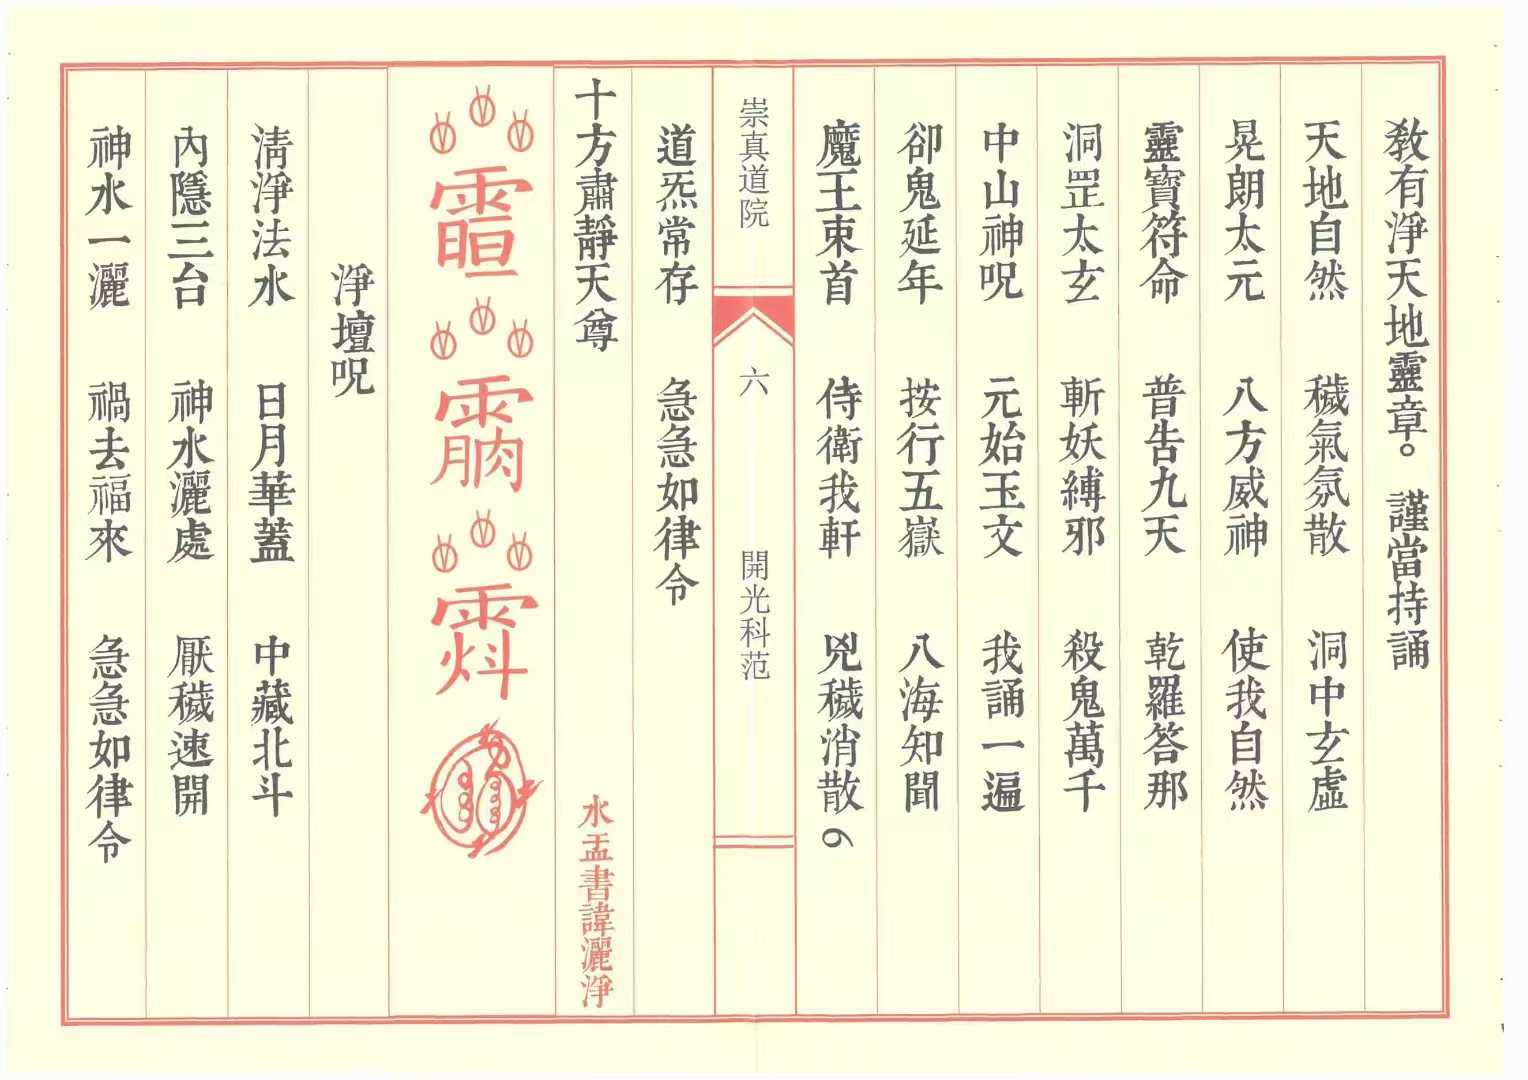 教有淨天地靈章。謹當持誦
天地自然 穢氣氛散 洞中玄虛
晃朗太元 八方威神 使我自然
靈寶符命 普告九天 乾羅答那
洞罡太玄 斬妖縛邪 殺鬼萬千
中山神呪 元始玉文 我誦一遍
卻鬼延年 按行五嶽 八海知聞
魔王束首 侍衛我軒 兇穢消散6
崇真道院 六 開光科范
道炁常存 急急如律令
十方肅靜天尊 水盂書諱灑淨
淨壇呪
清淨法水 日月華蓋 中藏北斗
內隱三台 神水灑處 厭穢速開
神水一灑 禍去福來 急急如律令